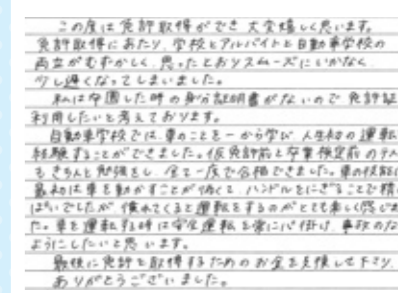 この度は免許取得ができ大変嬉しく思います。
免許取得にあたり、学校とアルバイトと自動車学校の
両立がむずかしく、思ったとおりスムーズにいかなく
少し遅くなってしまいました。
私は卒園した時の身分証明書がないので免許証
利用したいと考えております。
自動車学校では、車のことを一から学び、人生初の運転
経験することができました。仮免許前と卒業検定前の
もきちんと勉強をし、全て一度で合格できました。車の技能
最初は車を動かすことが怖くて、ハンドルをにぎることで精
ぱいでしたが、慣れてくると運転をするのがとても楽しく感じ
た。車を運転する時は安全運転を常に心掛け、事故のな
ようにしたいと思います。
最後に免許を取得するためのお金を支援して下さり、
ありがとうございました。